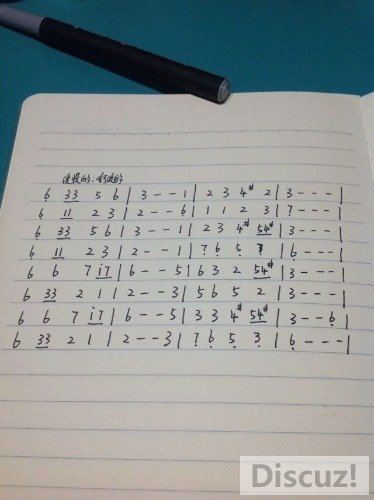 6 33 5 6 | 3 - - 1 | 2 3 4# 2 | 3 - - - |
6 11 2 3 | 2 - - 6 | 1 1 2 3 | 7 - - - |
6 33 5 6 | 3 - - 1 | 2 3 4# 54# | 3 - - - |
6 11 2 3 | 2 - - 1 | 7 6 5 | 6 - - - |
6 6 7 i7 | 6 - - 5 | 6 3 2 54# | 3 - - - |
6 33 2 1 | 2 - - 3 | 5 6 5 2 | 3 - - - |
6 6 7 i7 | 6 - - 5 | 3 3 4# 54# | 3 - - 6 |
6 33 2 1 | 2 - - 3 | 7 6 5 3 | 6 - - - |
Discuz!